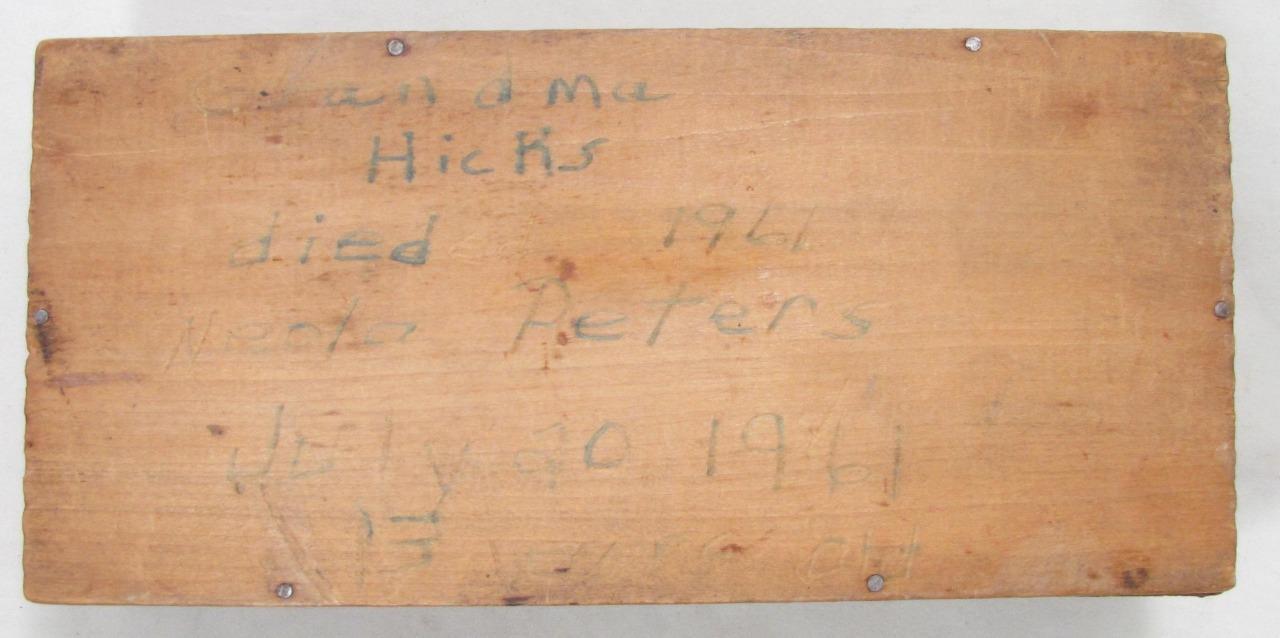 Grandma
Hicks
died 1961
Neola Peters
July 20 1961
13 years old